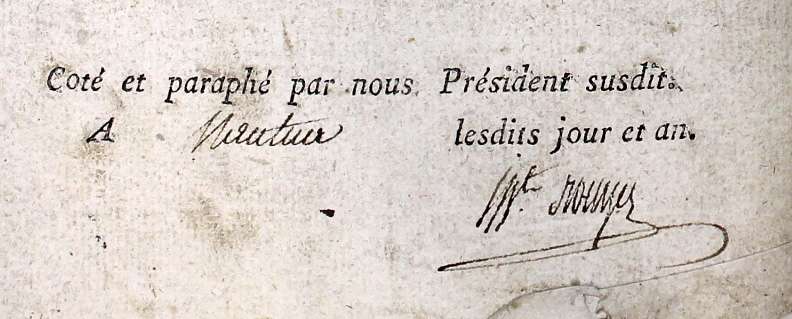 Coté et paraphé par nous Président susdit.
A Nantua lesdits jour et an.